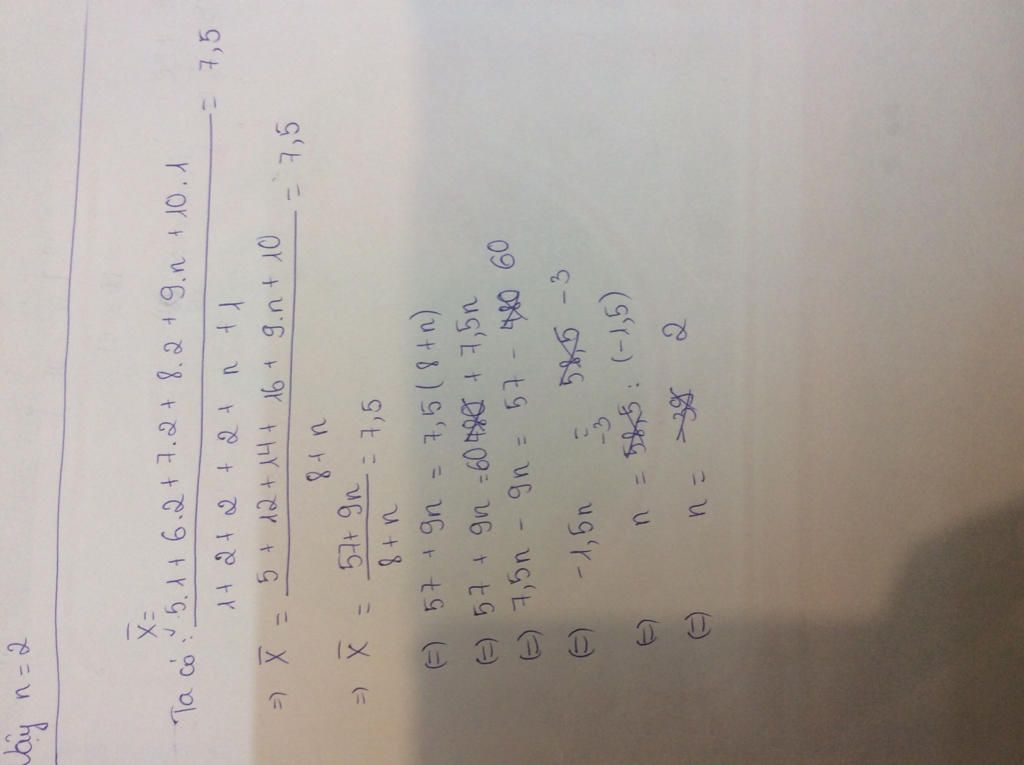 Vậy n = 2
X̄ =
Ta có: 5.1 + 6.2 + 7.2 + 8.2 + 9.n + 10.1 = 7,5
1 + 2 + 2 + 2 + n + 1
=> X̄ = 5 + 12 + 14 + 16 + 9.n + 10 = 7,5
8 + n
=> X̄ = 57 + 9n = 7,5
8 + n
(=) 57 + 9n = 7,5 (8 + n)
(=) 57 + 9n = 60 480 + 7,5n
(=) 7,5n - 9n = 57 - 480 60
(=) -1,5n = 58,5 -3
-3
(=) n = 58,5 : (-1,5)
(=) n = -39 2